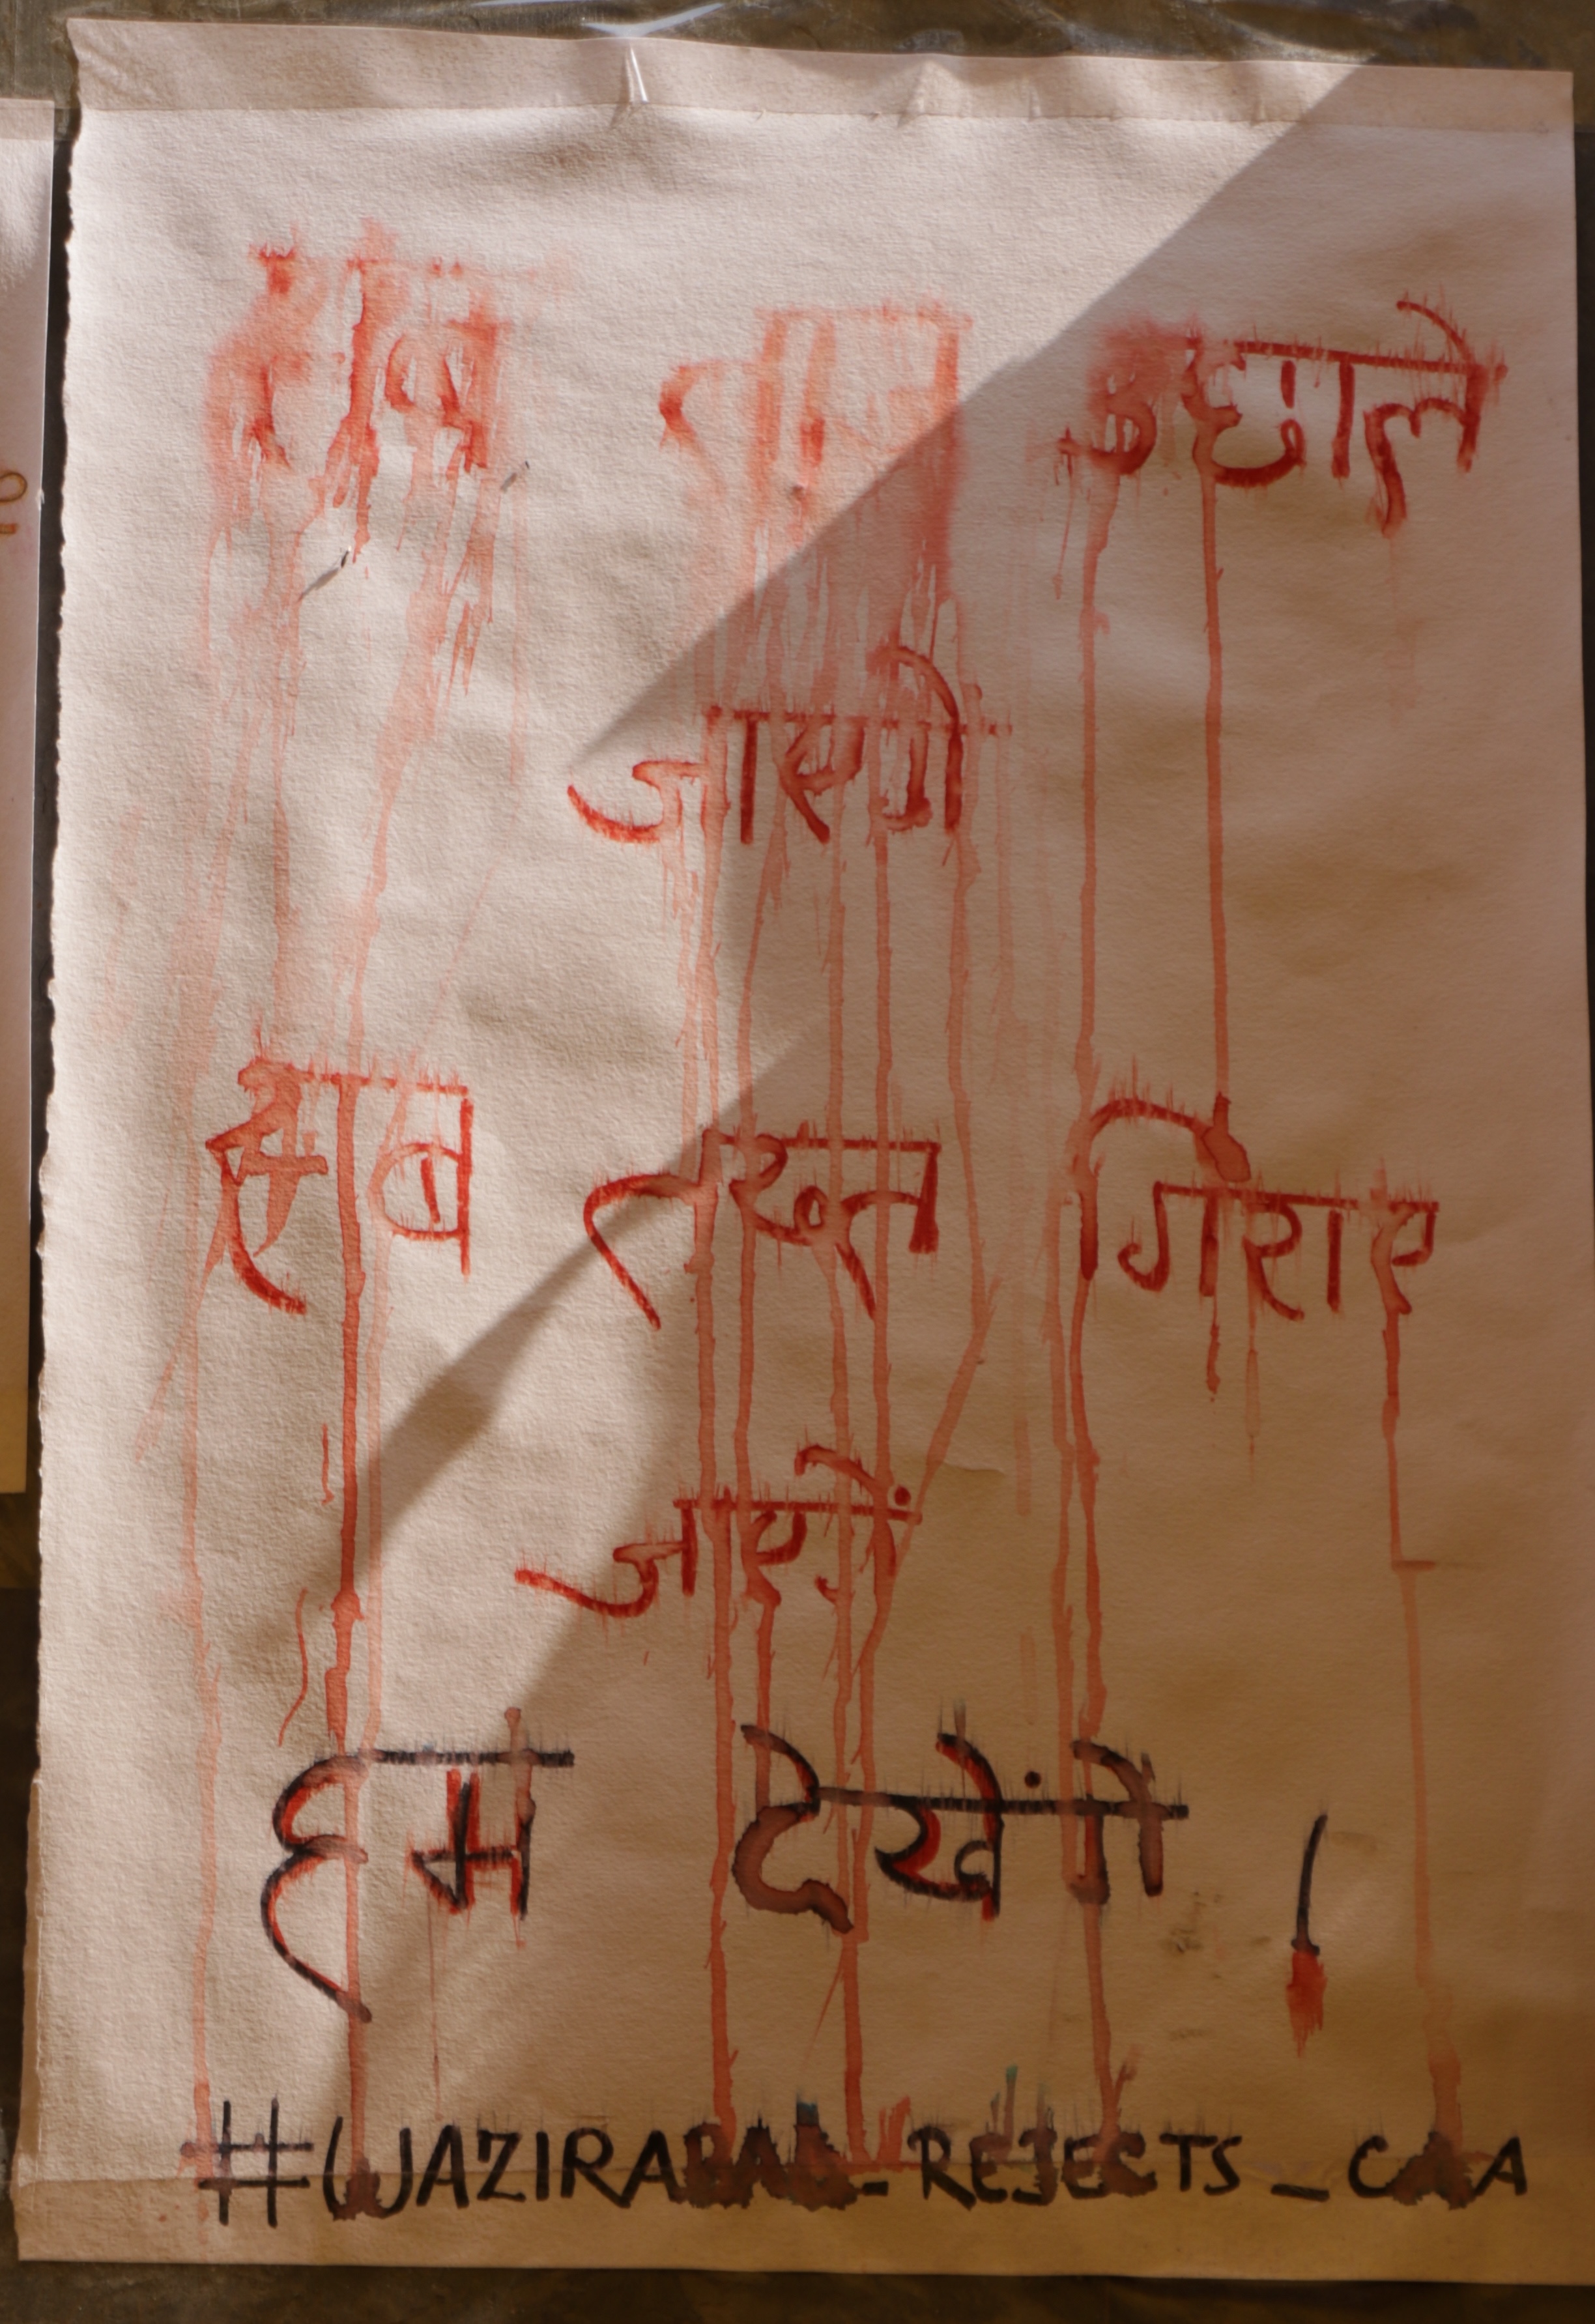 सब उछाले
जाएगे
सब तख्त गिराए
जाएगें
हम देखेंगे !
#WAZIRABAD_REJECTS_CAA